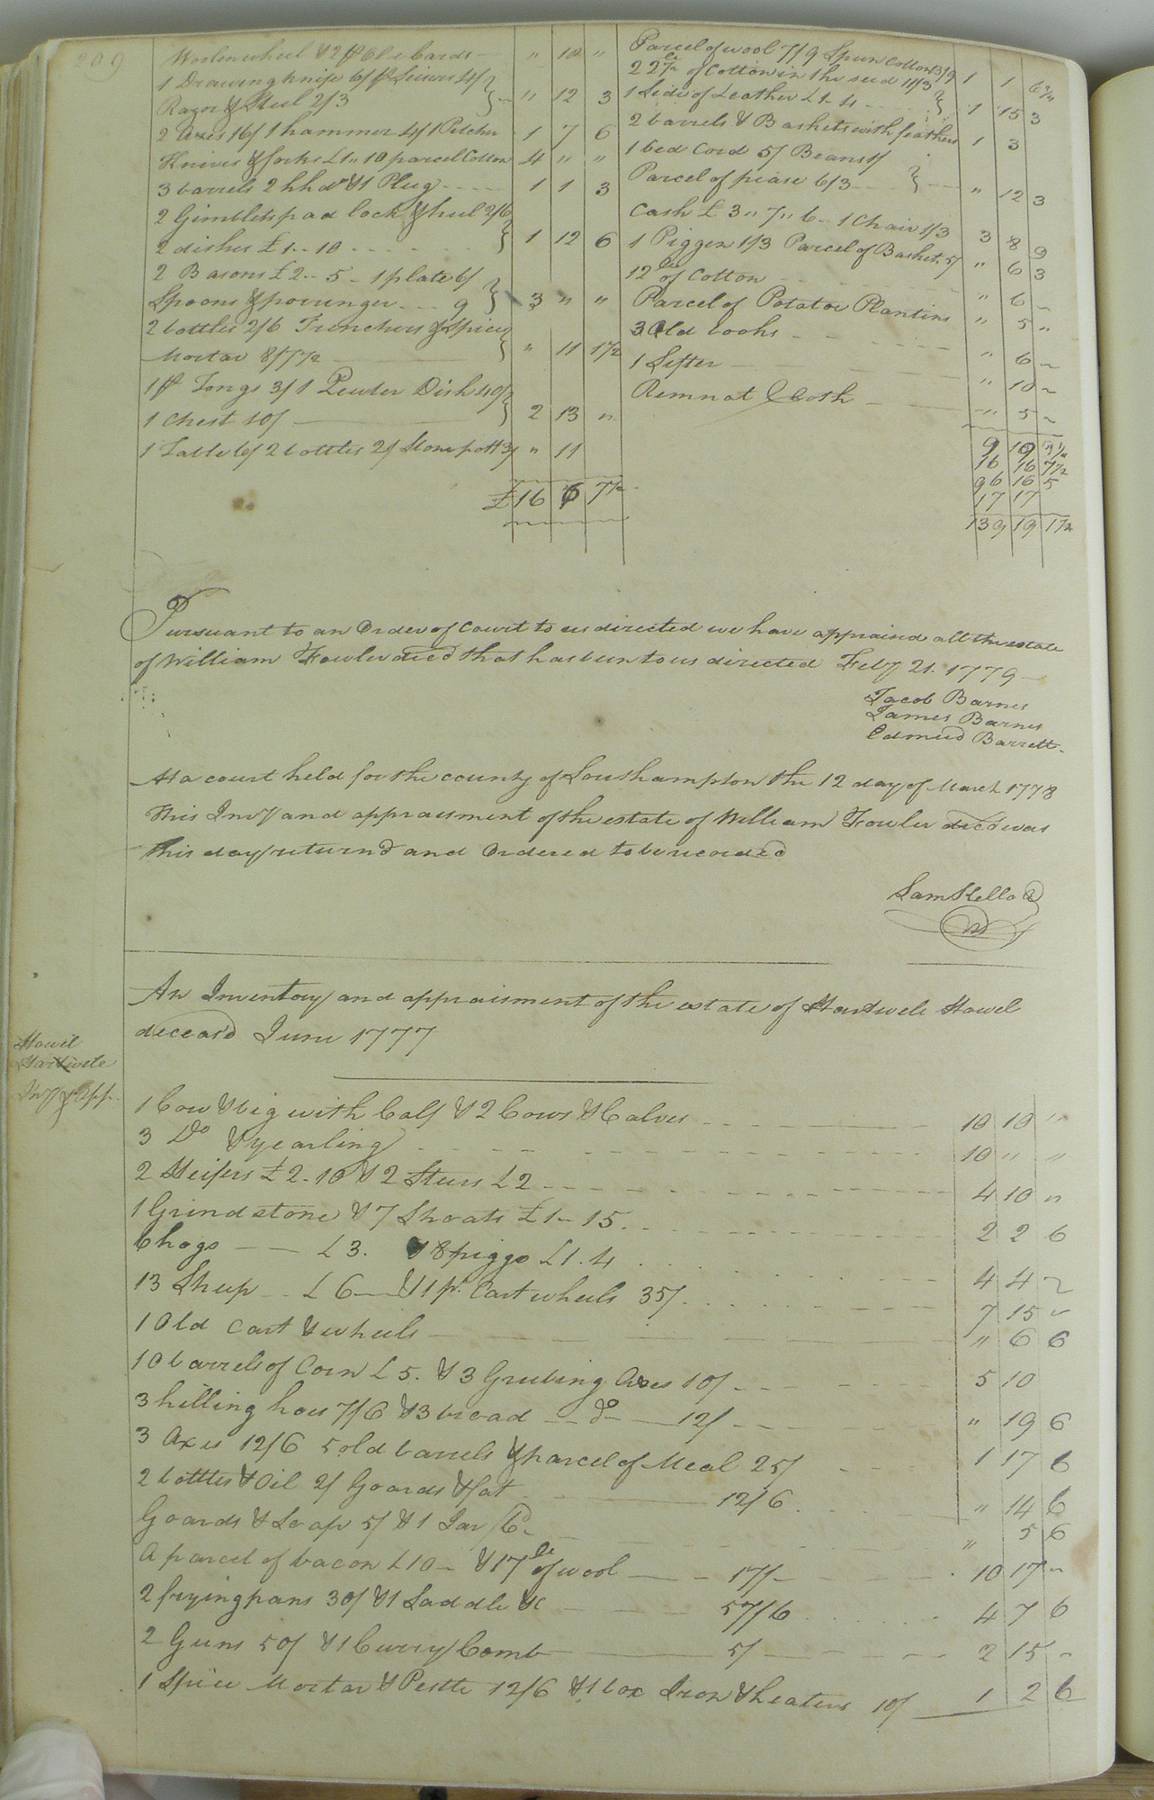 209
Woolen wheel & 2 pr Old Cards " 10 "
1 Drawing knife 6/ pr Scissors 4/
Razor & Steel 2/3 " 12 3
2 Axes 16/ 1 hammer 4/ 1 Pitcher 1 7 6
Knives & forks £1 " 10 parcel Cotton 4 " "
3 barrels 2 hhds & 1 Plug 1 1 3
2 Gimblets pad lock & 2/6
2 dishes £1 - 10 1 12 6
2 Basons £2 - 5 - 1 plate 6/
Spoons & porringer 9 3 " "
2 bottles 2/6 Trenchers & Spicey
Mortar 8/7½ " 11 1½
1 pr Tongs 3/ 1 Pewter Dish 40/
1 Chest 10/ 2 13 "
1 Table 6/ 2 bottles 2/ Stone pott 3/ " 11
£16 6 7½
Parcel of wool 7/9 Spun Cotton 13/9 1 1 6¾
22 lb of Cotton in the seed 11/3
1 Side of Leather £1 - 4 1 15 3
2 barrels & Baskets with feathers 1 3
1 bed Cord 5/ Beans 1/
Parcel of pease 6/3 " 12 3
Cash £3 " 7 " 6 - 1 Chair 1/3 3 8 9
1 Piggen 1/3 Parcel of Baskets 5/ " 6 3
12 lb of Cotton " 6 -
Parcel of Potatoe Plantins " 5 "
3 Old books " 6 -
1 Sifter " 10 -
Remnat Cloth " 5 -
9 19
16 16 7½
96 16 5
17 17
139 19 1½
Pursuant to an Order of Court to us directed we have appraisd all the estate
of William Fowler decd that has been to us directed Feby 21. 1779
Jacob Barnes
James Barnes
Edmund Barrett
At a court held for the county of Southampton the 12 day of March 1778
This Invy and appraisment of the estate of William Fowler decd was
this day returnd and Ordered to be recorded
Sam Kello
An Inventory and appraisment of the estate of Hartwell Howel
deceasd June 1777
Howel
Hartwell
Invy & App.
1 Cow & big with Calf & 2 Cows & Calves 10 10 "
3 Do & yearling 10 " "
2 Heifers £2 - 10 & 2 Steers £2 4 10 "
1 Grindstone & 7 Shoats £1 - 15 2 2 6
6 hogs £3. & 8 piggs £1 . 4 4 4 -
13 Sheep £6 & 1 pr Cart wheels 35/ 7 15 -
1 Old Cart & wheels " 6 6
10 barrels of Corn £5. & 3 Grubing Axes 10/ 5 10
3 hilling hoes 7/6 & 3 broad do 12/ " 19 6
3 Axes 12/6 5 old barrels & parcel of Meal 25/ 1 17 6
2 bottles & Oil 2/ Goards & fat 12/6 " 14 6
Goards & Soap 5/ & 1 Jar 6d " 5 6
A parcel of bacon £10 - & 17 lb of wool 17/ 10 17 -
2 frying pans 30/ & 1 Saddle &c 57/6 4 7 6
2 Guns 50/ & 1 Curry Comb 5/ 2 15 -
1 Spice Mortar & Pestle 12/6 & 1 box Iron & heaters 10/ 1 2 6